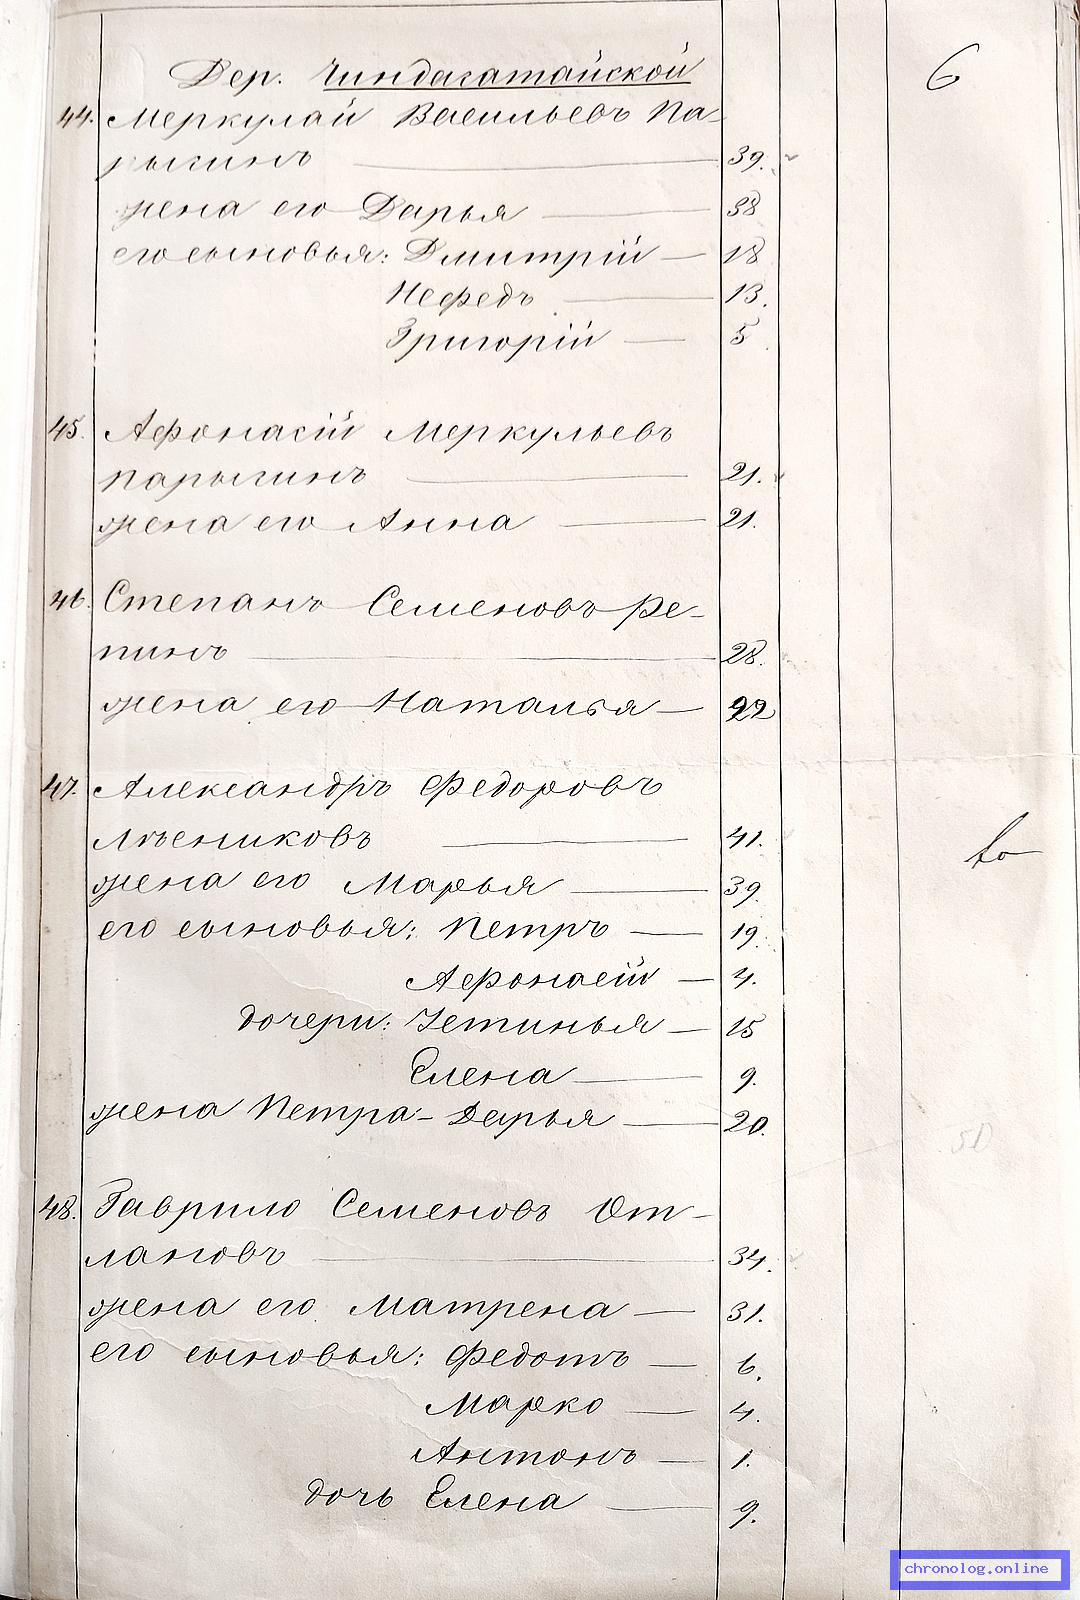 6
Дер. Чиндагатайской
44. Меркулай Васильевъ Па-
рыгинъ 39.
жена его Дарья 38
его сыновья: Дмитрій 18
Нефедъ 13.
Григорій 5
45. Афонасій Меркульевъ
Парыгинъ 21.
жена его Анна 21.
46. Степанъ Семеновъ Ре-
пинъ 28.
жена его Наталья 22
47. Александръ Федоровъ
Лѣсниковъ 41.
жена его Марья 39.
его сыновья: Петръ 19.
Афонасій 4.
дочери: Устинья 15
Елена 9.
жена Петра - Дарья 20.
48. Гаврило Семеновъ От-
лановъ 34.
жена его Матрена 31.
его сыновья: Федотъ 6.
Марко 4.
Антонъ 1.
дочь Елена 9.
chronolog.online